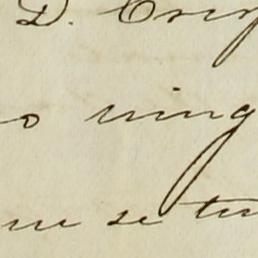 D. Cris
o ning
ue se tu